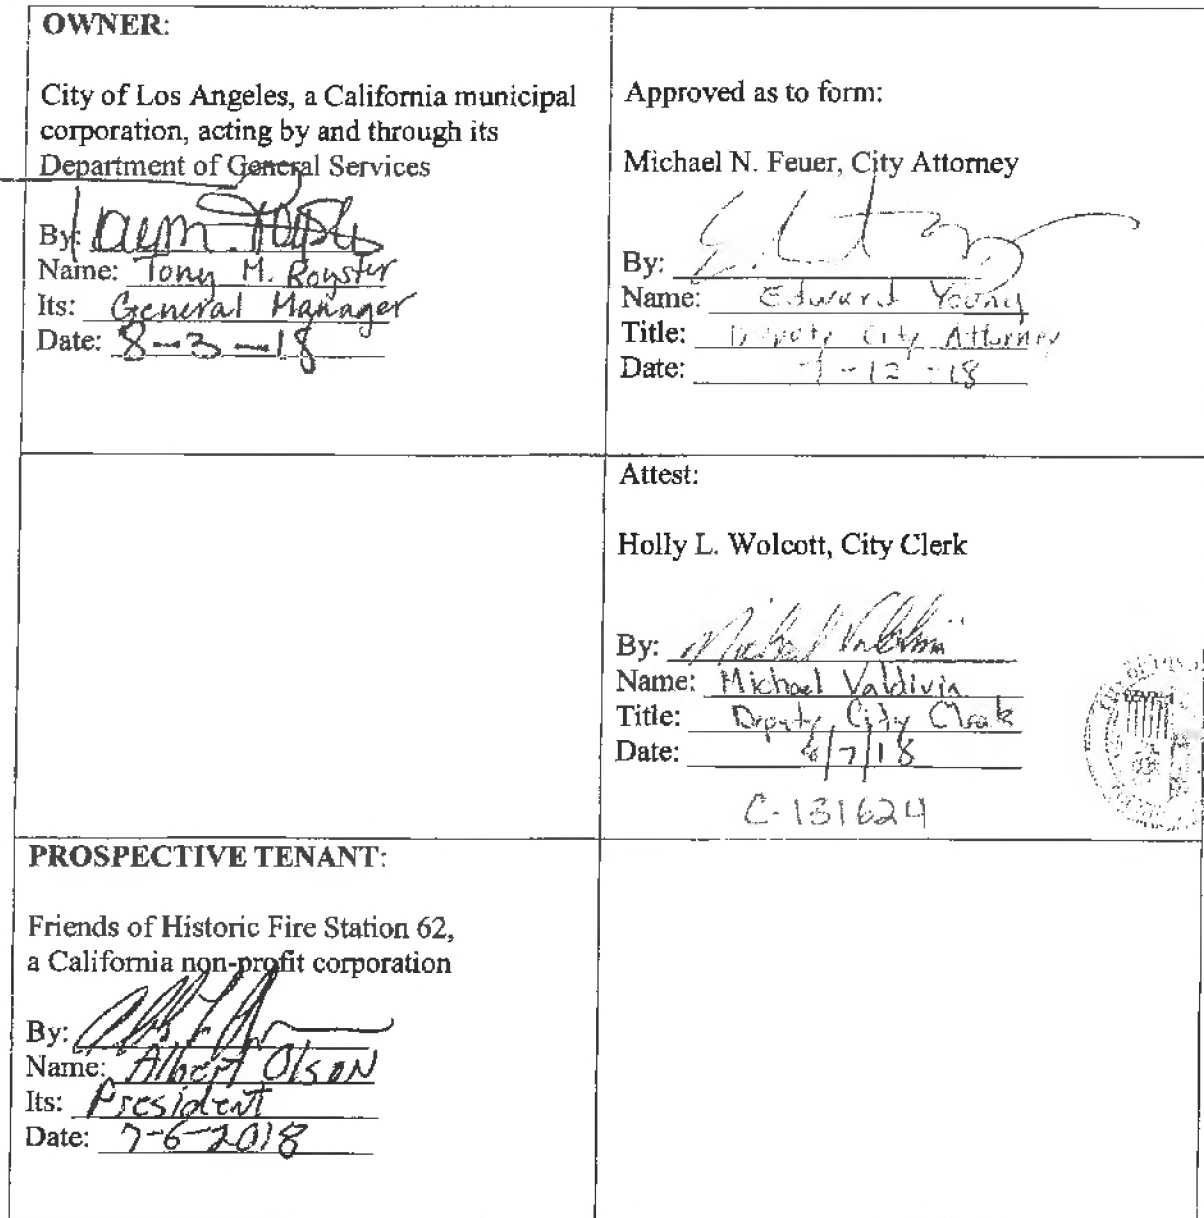 OWNER:
City of Los Angeles, a California municipal
corporation, acting by and through its
Department of General Services
By:
Name: Tony M. Royster
Its: General Manager
Date: 8-3-18
Approved as to form:
Michael N. Feuer, City Attorney
By:
Name: Edward Young
Title: Deputy City Attorney
Date: 7-12-18
Attest:
Holly L. Wolcott, City Clerk
By: Michael Valdivia
Name: Michael Valdivia
Title: Deputy City Clerk
Date: 8/7/18
C-131624
PROSPECTIVE TENANT:
Friends of Historic Fire Station 62,
a California non-profit corporation
By:
Name: Albert Olson
Its: President
Date: 7-6-2018